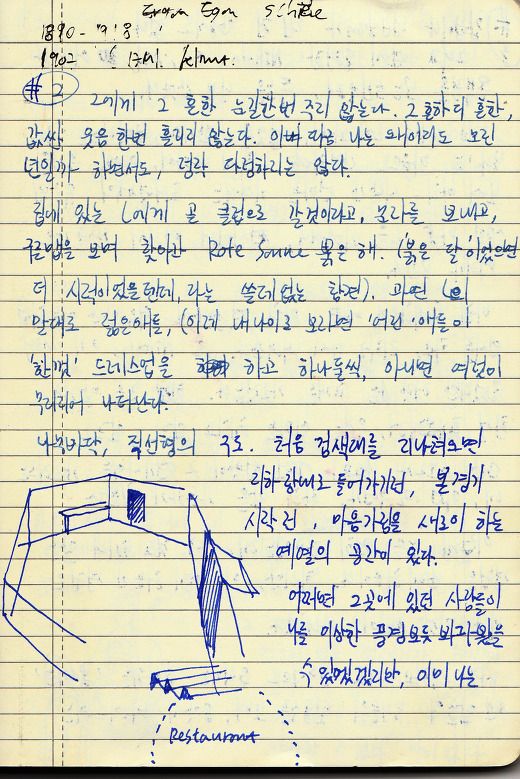 Egon Schiele
1890 -
1902
#2
그에게 그 흔한 눈길한번 주지 않는다. 그 흔하디 흔한,
값싼 웃음 한번 흘리지 않는다. 이따금 나는 왜이리도 모진
년일까 하면서도, 덩락 다정하지는 않다.
집에 있는 L에게 곧 클럽으로 갈것이라고, 문자를 보내고,
구글맵을 보며 찾아간 Rote Sonne 붉은 해. (붉은 달이었으면
더 시적이었을텐데, 라는 쓸데없는 참견). 과연 L의
말대로 젊은애들, (이제 내 나이로 보자면 '어린' 애들이
'한껏' 드레스업을 하고 하나둘씩, 아니면 여럿이
무리지어 나타난다.
나무바닥, 직선형의 구도. 처음 검색대를 지나쳐오면
지하 광장으로 들어가기전, 본경기
시작 전, 마음가짐을 새로이 하는
예열의 공간이 있다.
어쩌면 그곳에 있던 사람들이
나를 이상한 풍경보듯 봐
수 있었겠지만, 이미 나는
Restaurant